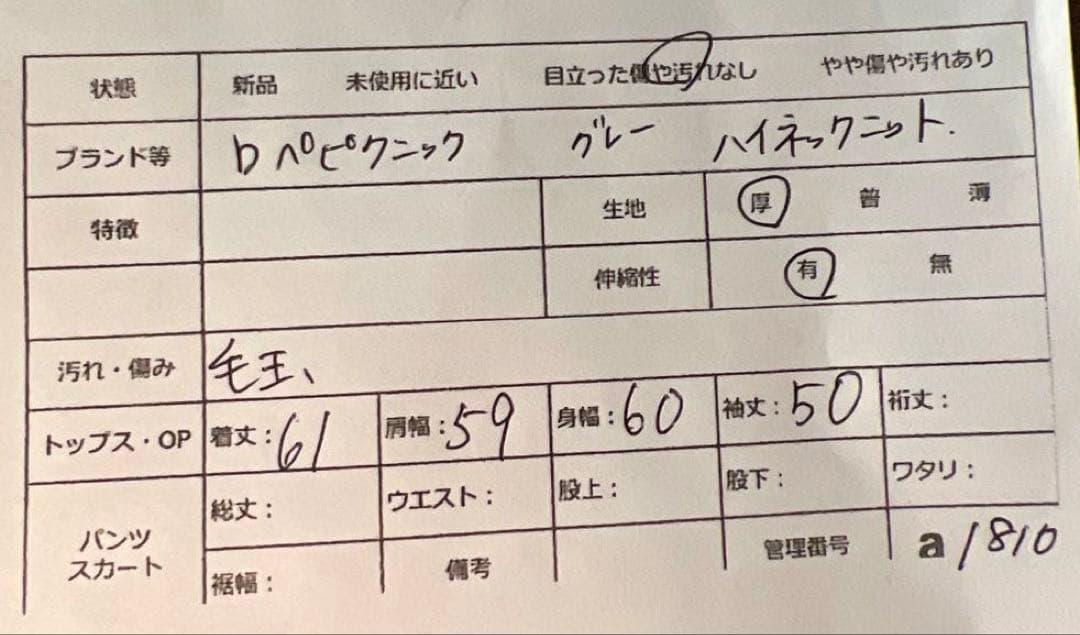 状態 新品 未使用に近い 目立った傷や汚れなし やや傷や汚れあり
ブランド等 ロペピクニック グレー ハイネックニット.
特徴 生地 厚 普 薄
伸縮性 有 無
汚れ・傷み 毛玉、
トップス・OP 着丈：61 肩幅：59 身幅：60 袖丈：50 裄丈：
パンツ スカート
総丈： ウエスト： 股上： 股下： ワタリ：
裾幅： 備考 管理番号 a1810